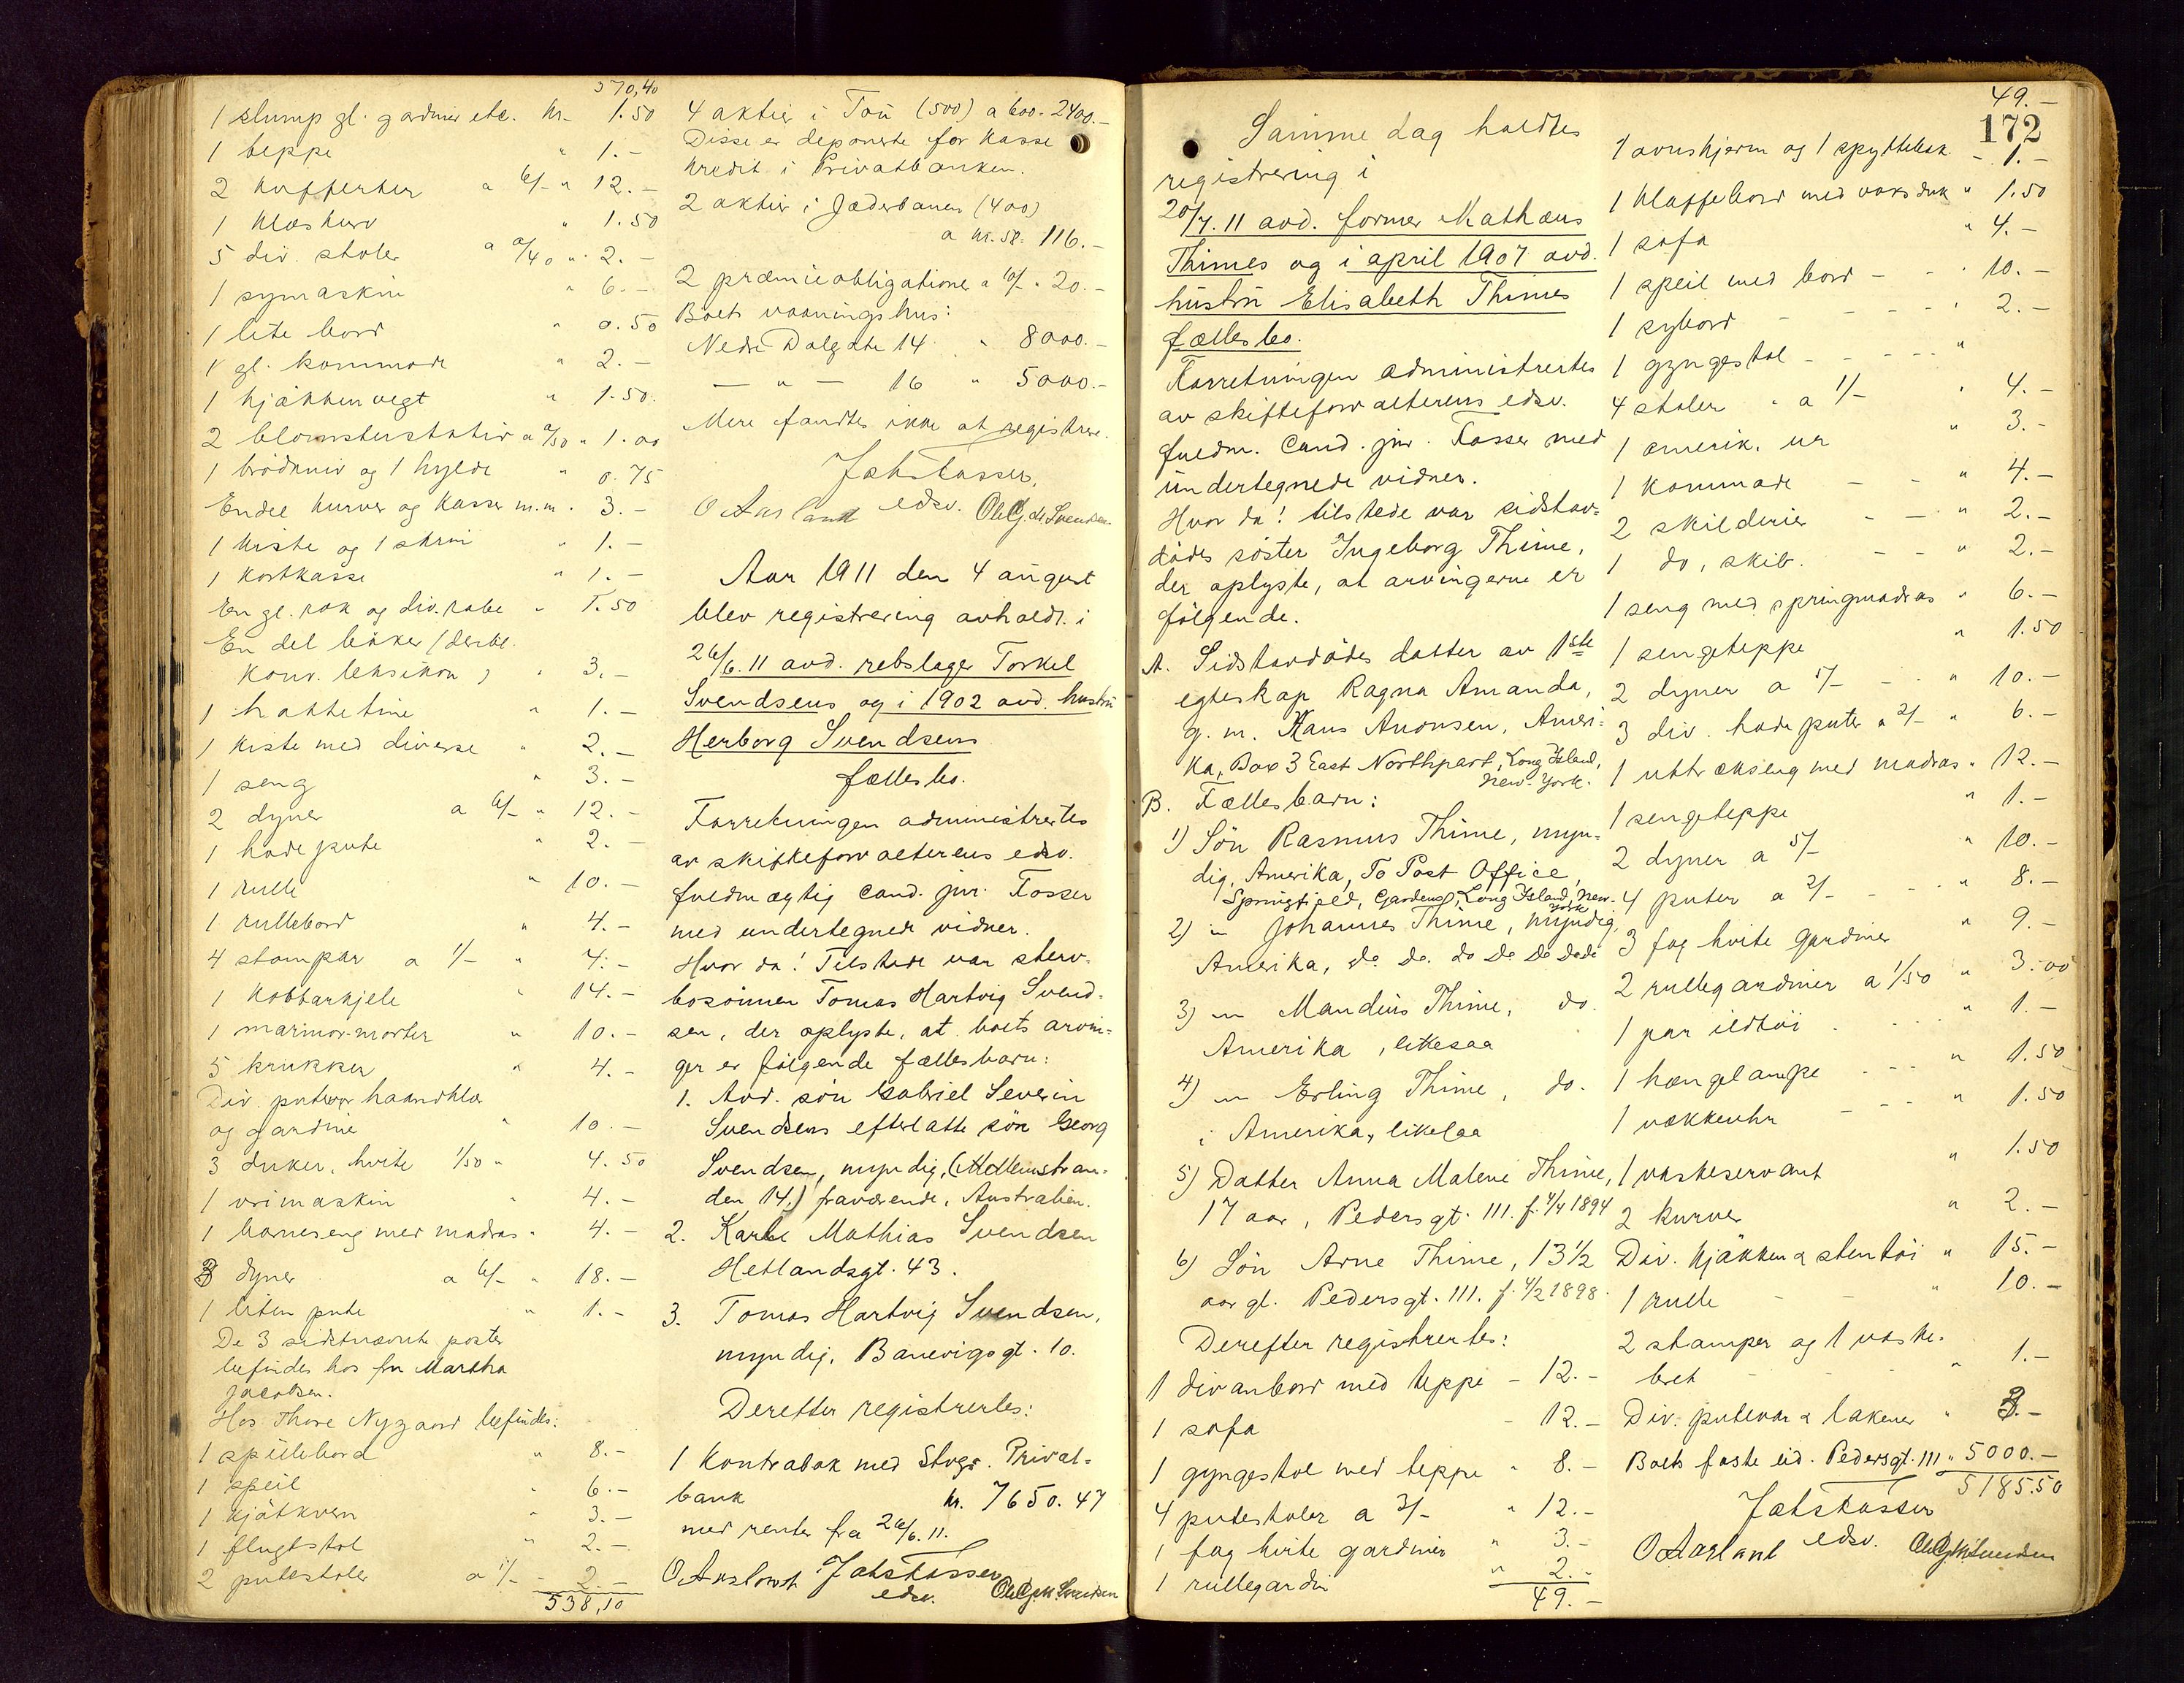 370,40
1 slump gl. gardiner etc. kr. 1.50
1 teppe " 1.-
2 kufferter a 6/- " 12.-
1 klæskurv " 1.50
5 div. stoler a 0/40 " 2.-
1 symaskin " 6.-
1 lite bord " 0.50
1 gl. kommode " 2.-
1 kjøkkenvegt " 1.50
2 blomsterstativ a 0/50 " 1.00
1 brödkniv og 1 hylde " 0.75
Endel kurver og kasser m.m. " 3.-
1 kiste og 1 skrin " 1.-
1 kostkasse " 1.-
En gl. rok og div. rabe " 1.50
En del bøker (derbl.
konv. leksikon) " 3.-
1 hattetine " 1.-
1 kiste med diverse " 2.-
1 seng " 3.-
2 dyner a 6/- " 12.-
1 hodepute " 2.-
1 rulle " 10.-
1 rullebord " 4.-
4 stampar a 1/- " 4.-
1 kobbarkjele " 14.-
1 marmor-morter " 10.-
5 krukker " 4.-
Div. putevar haandklær
og gardine " 10.-
3 duker, hvite 1/50 " 4.50
1 vrimaskin " 4.-
1 barneseng med madras " 4.-
3 dyner a 6/- " 18.-
1 liten pute " 1.-
De 3 sidstnævnte poster
befindes hos fru Martha
Jacobsen.
Hos Thore Nygaard befindes:
1 spillebord " 8.-
1 speil " 6.-
1 kjötkvern " 3.-
1 flugtstol " 2.-
2 putestoler a 1/- - 2.-
538,10
4 aktier i Tou (500) a 600.- 2400.-
Disse er deponerte for kasse
kredit i Privatbanken.
2 aktier i Jæderbanen (400)
a kr. 58.- 116.-
2 præmieobligationer a 10/- " 20.-
Boets vaaningshus:
Nedre Dalgate 14 " 8000.-
— " — 16 " 5000.-
Mere fandtes ikke at registrere.
Joh. Fosser,
edsv.
O Aarland Ole Gj. M. Svendsen
Aar 1911 den 4 august
blev registrering avholdt i
26/6.11 avd. rebslager Torkel
Svendsens og i 1902 avd. hustru
Herborg Svendsens
fællesbo.
Forretningen administrertes
av skifteforvalterens edsv.
fuldmægtig cand. jur. Fosser
med undertegnede vidner.
Hvor da! Tilstede var sterv-
bosönnen Tomas Hartvig Svend-
sen, der oplyste, at boets arvin-
ger er følgende fællesbarn:
1. Avd. sön Gabriel Severin
Svendsens efterlatte sön Georg
Svendsen, myndig, (Mellemstran-
den 14.) fraværende, Australien.
2. Karle Mathias Svendsen
Hetlandsgt. 43.
3. Tomas Hartvig Svendsen,
myndig, Banevigsgt. 10.
Derefter registrertes:
1 Kontrabok med Stvgr. Privat-
bank kr. 7650.47
med renter fra 26/6.11.
O Aarland Joh. Fosser
edsv. Ole Gj. M. Svendsen
Samme dag holdtes
registrering i
20/7.11 avd. former Mathæus
Thimes og i april 1907 avd.
hustru Elisabeth Thimes
fællesbo.
Forretningen administrertes
av skifteforvalterens edsv.
fuldm. Cand. jur. Fosser med
undertegnede vidner.
Hvor da! tilstede var sidstav-
dødes söster Ingeborg Thime,
der oplyste, at arvingerne er
fölgende.
A. Sidstavdödes datter av 1ste
egteskap Ragna Amanda,
g. m. Hans Anonsen, Ameri-
ka, Box 3 East Northport, Long Island,
New-York.
B. Fællesbarn:
1) Sön Rasmus Thime, myn-
dig, Amerika, To Post Office,
Springfield, Gardens, Long Island, New-
York
2) " Johannes Thime, myndig,
Amerika, do do do do do dodo
3) " Mandius Thime, do.
Amerika, likesaa
4) " Erling Thime, do.
i Amerika, likesaa
5) Datter Anna Malene Thime,
17 aar, Pedersgt. 111. f. 4/4 1894
6) Sön Arne Thime, 13½
aar gl. Pedersgt. 111. f. 4/2 1898.
Derefter registrertes:
1 divanbord med teppe - 12.-
1 sofa - 12.-
1 gyngestol med teppe " 8.-
4 putestoler a 3/- " 12.-
1 fag hvite gardiner " 3.-
1 rullegardin " 2.-
49.-
49.-
172
1 ovnskjerm og 1 spyttebak - 1.-
1 klaffebord med voksduk " 1.50
1 sofa " 4.-
1 speil med bord - - " 10.-
1 sybord - - - - 2.-
1 gyngestol - - - - "
4 stoler " a 1/- " 4.-
1 amerik. ur " 3.-
1 kommode - - " 4.-
2 skilderier - - " 2.-
1 do, skib. - - " 2.-
1 seng med springmadras " 6.-
1 sengeteppe " 1.50
2 dyner a 5/- - - " 10.-
3 div. hodeputer a 2/- " 6.-
1 uttrækseng med madras " 12.-
1 sengeteppe " 1.-
2 dyner a 5/- " 10.-
4 puter a 2/- - - - " 8.-
3 fag hvite gardiner " 9.-
2 rullegardiner a 1/50 " 3.00
1 par ildtöi - - - " 1.-
1 hængelampe - - - " 1.50
1 vækkeuhr - - - " 1.50
1 vaskeservant " 1.50
2 kurver " 2.-
Div. kjøkken & stentöi " 15.-
1 rulle - - " 10.-
2 stamper og 1 vaske-
bret - - " 1.-
Div. putevar & lakener " 3.-
Boets faste eid. Pedersgt. 111 " 5000.-
5185.50
Joh. Fosser
edsv.
O Aarland Ole Gj. M. Svendsen